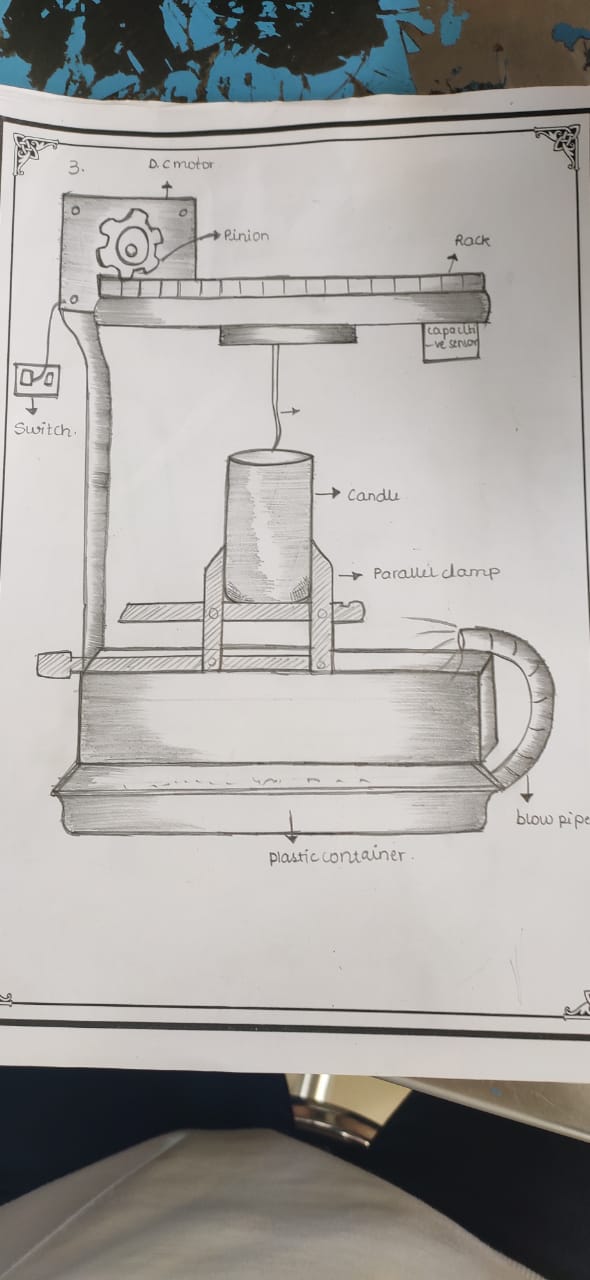 3.
D.C motor
Pinion
Rack
capaciti
-ve sensor
Switch.
Candle
Parallel clamp
blow pipe
plastic container.